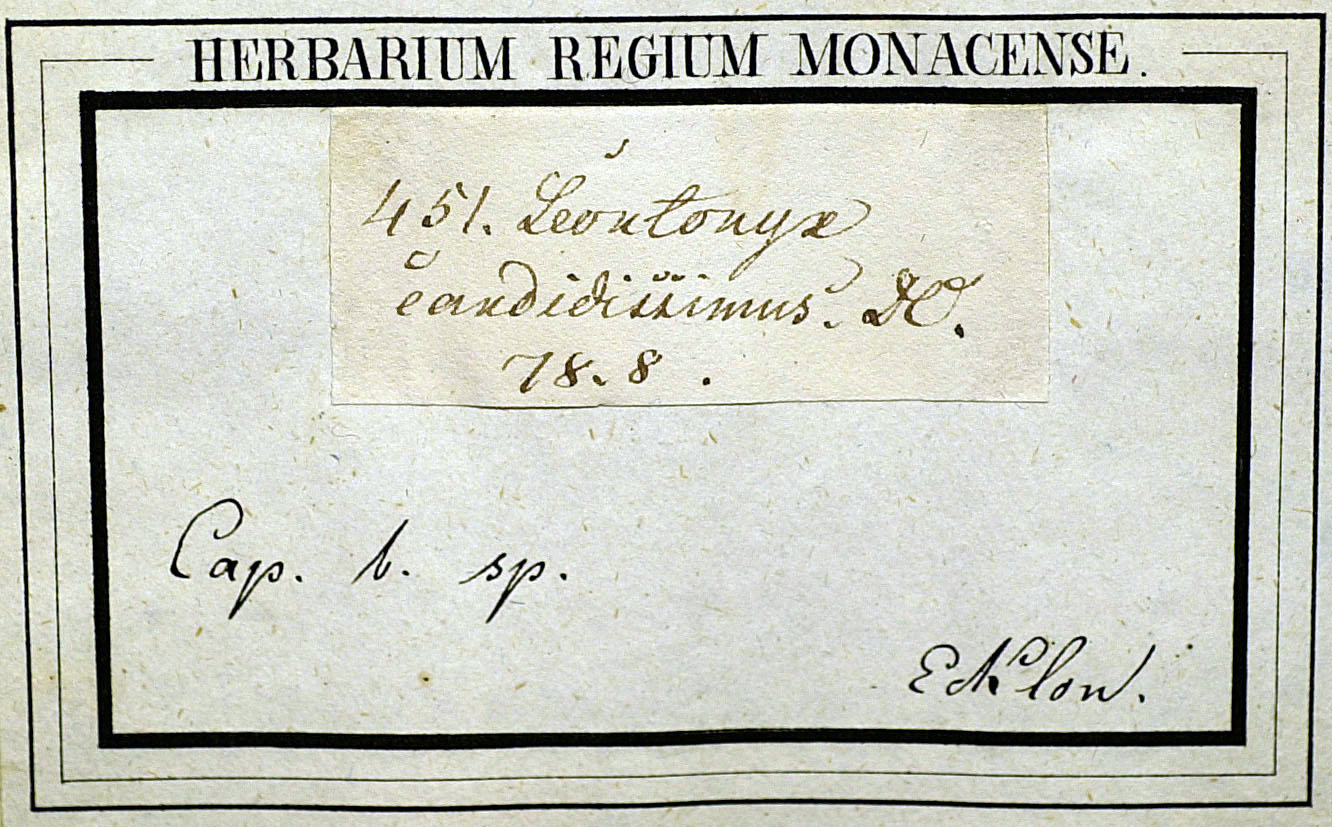 HERBARIUM REGIUM MONACENSE.
451. Leontonyx
candidissimus. DC.
78. 8.
Cap. b. sp.
Ecklon.